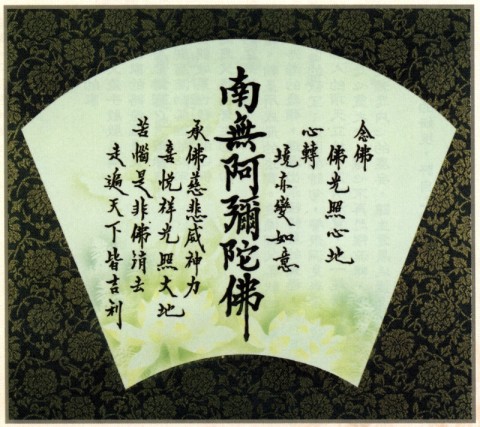 念佛
佛光照心地
心轉
境亦變如意
南無阿彌陀佛
承佛慈悲威神力
喜悅祥光照大地
苦惱是非佛消去
走遍天下皆吉利